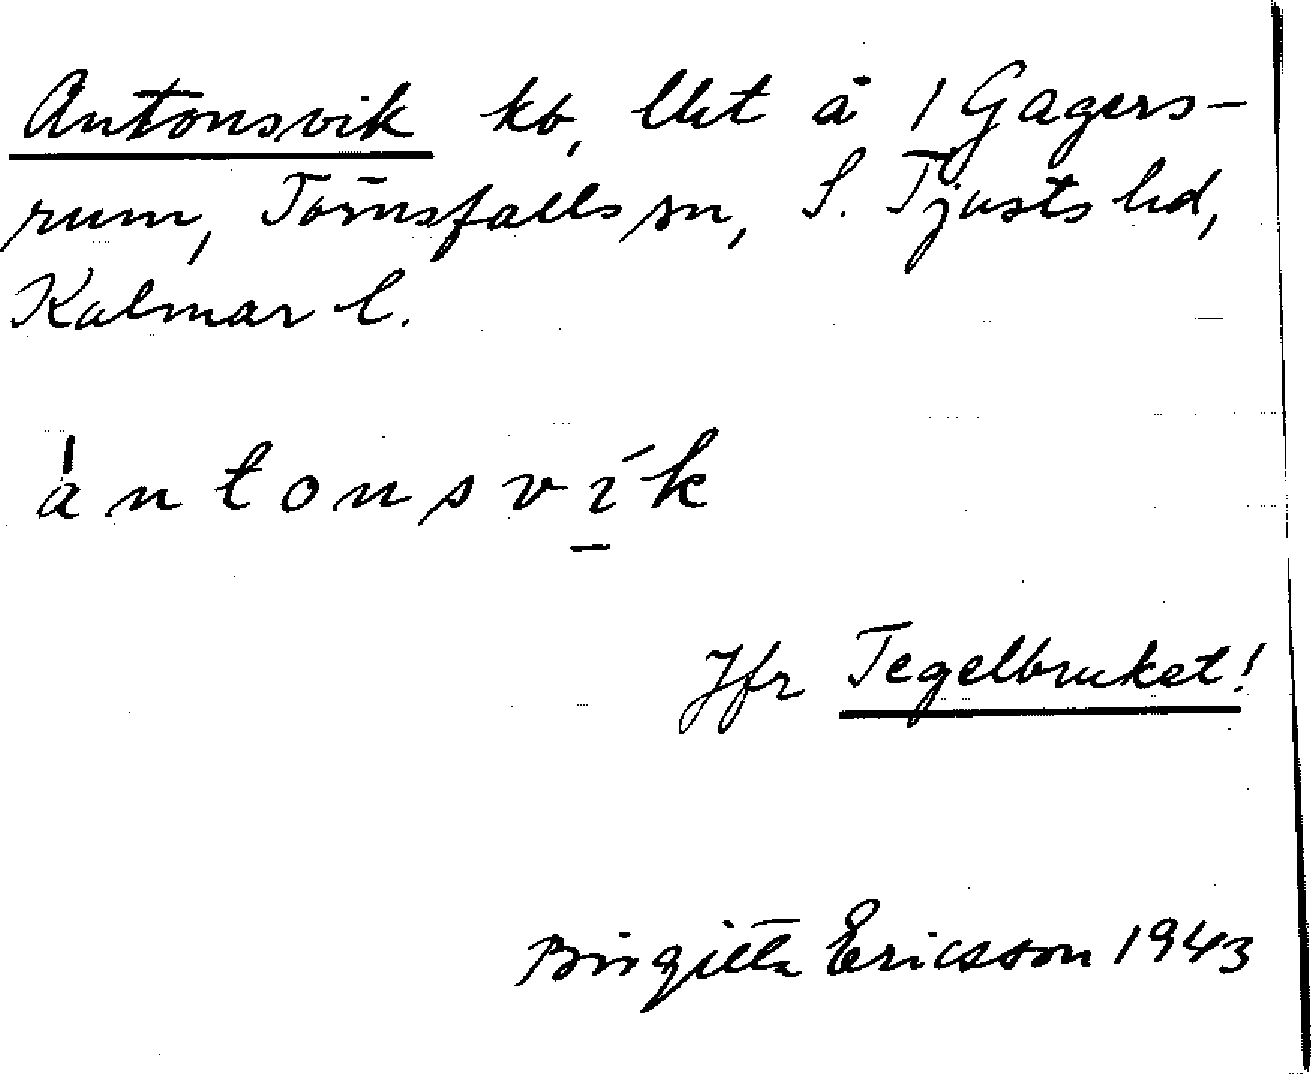 Antonsvik kb, lht å 1 Gagers-
rum, Törnsfalls sn, S. Tjusts hd,
Kalmar l.
àntonsvík
Jfr Tegelbruket!
Birgitta Ericsson 1943